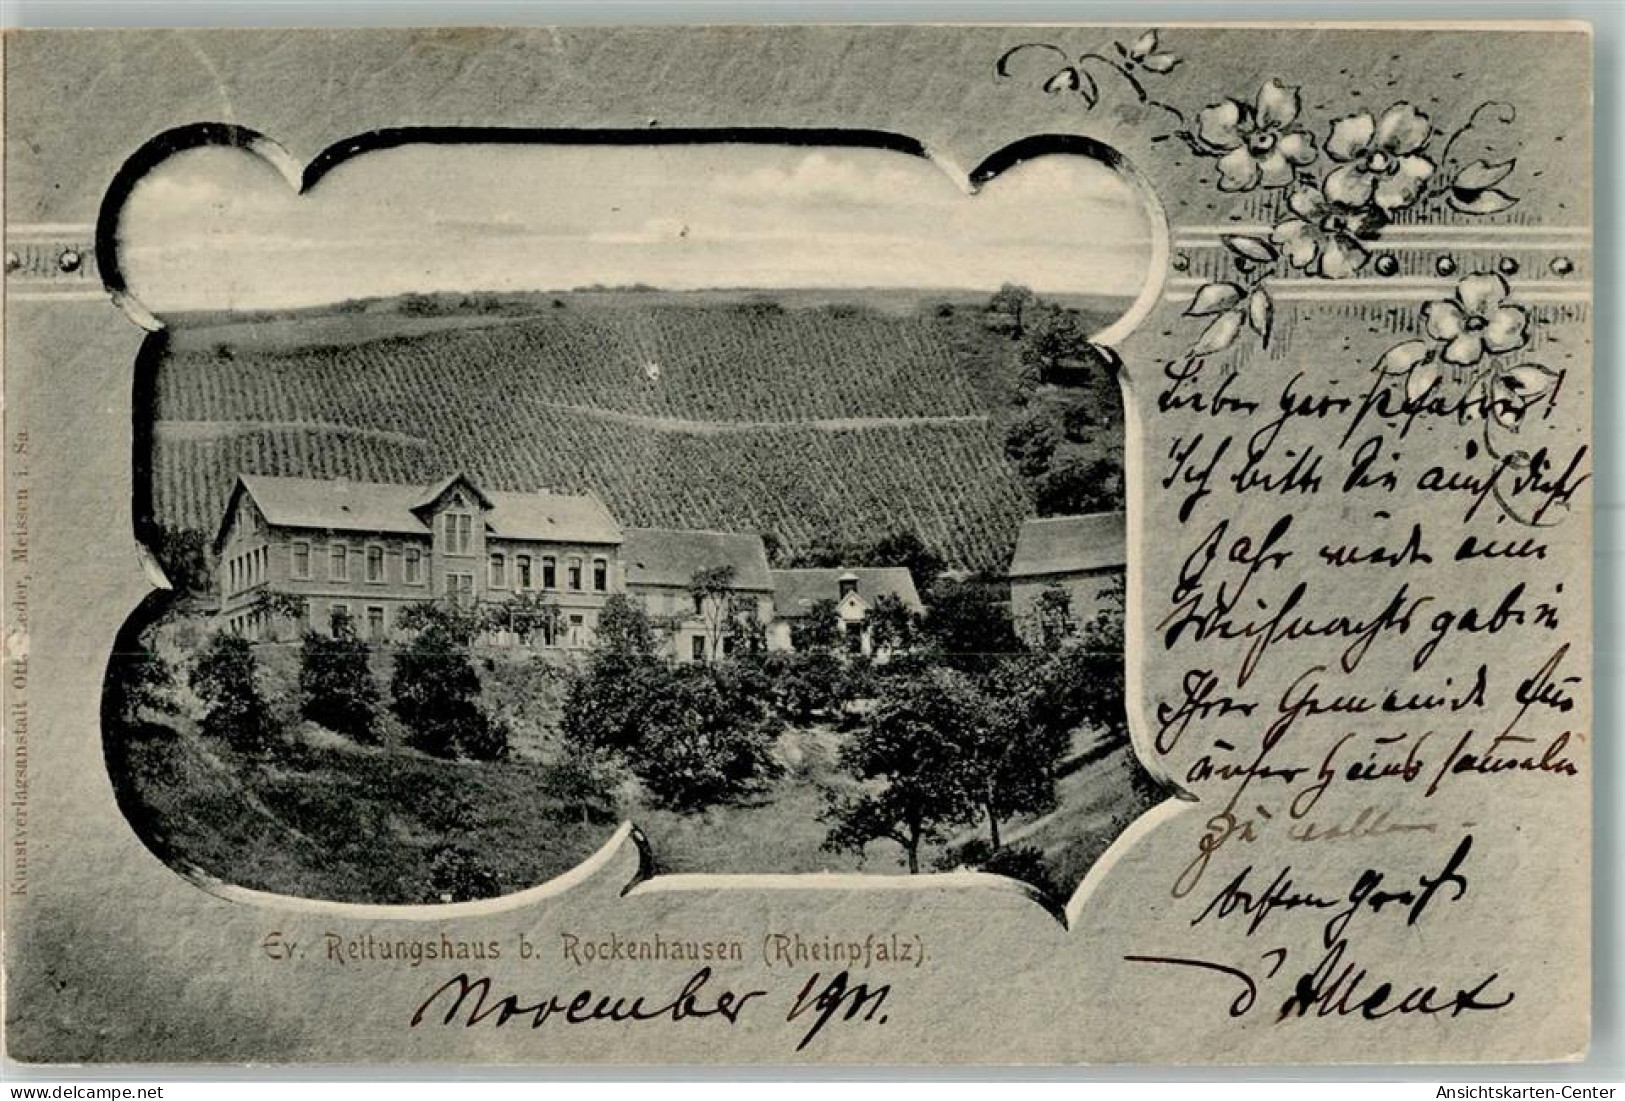 Lieber Herr Pfarrer!
Ich bitte Sie auch dieses
Jahr wieder eine
Weihnachtsgabe in
Ihrer Gemeinde für
unser Haus sammeln
zu wollen.
besten Gruß
d'Alleux
Ev. Reitungshaus b. Rockenhausen (Rheinpfalz).
November 1901.
Kunstverlagsanstalt Ott. Leder, Meissen i. Sa.
Ansichtskarten-Center